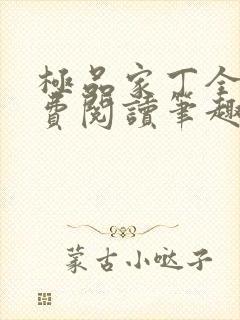 極品家丁全
費閱讀筆趣
蒙古小哒子